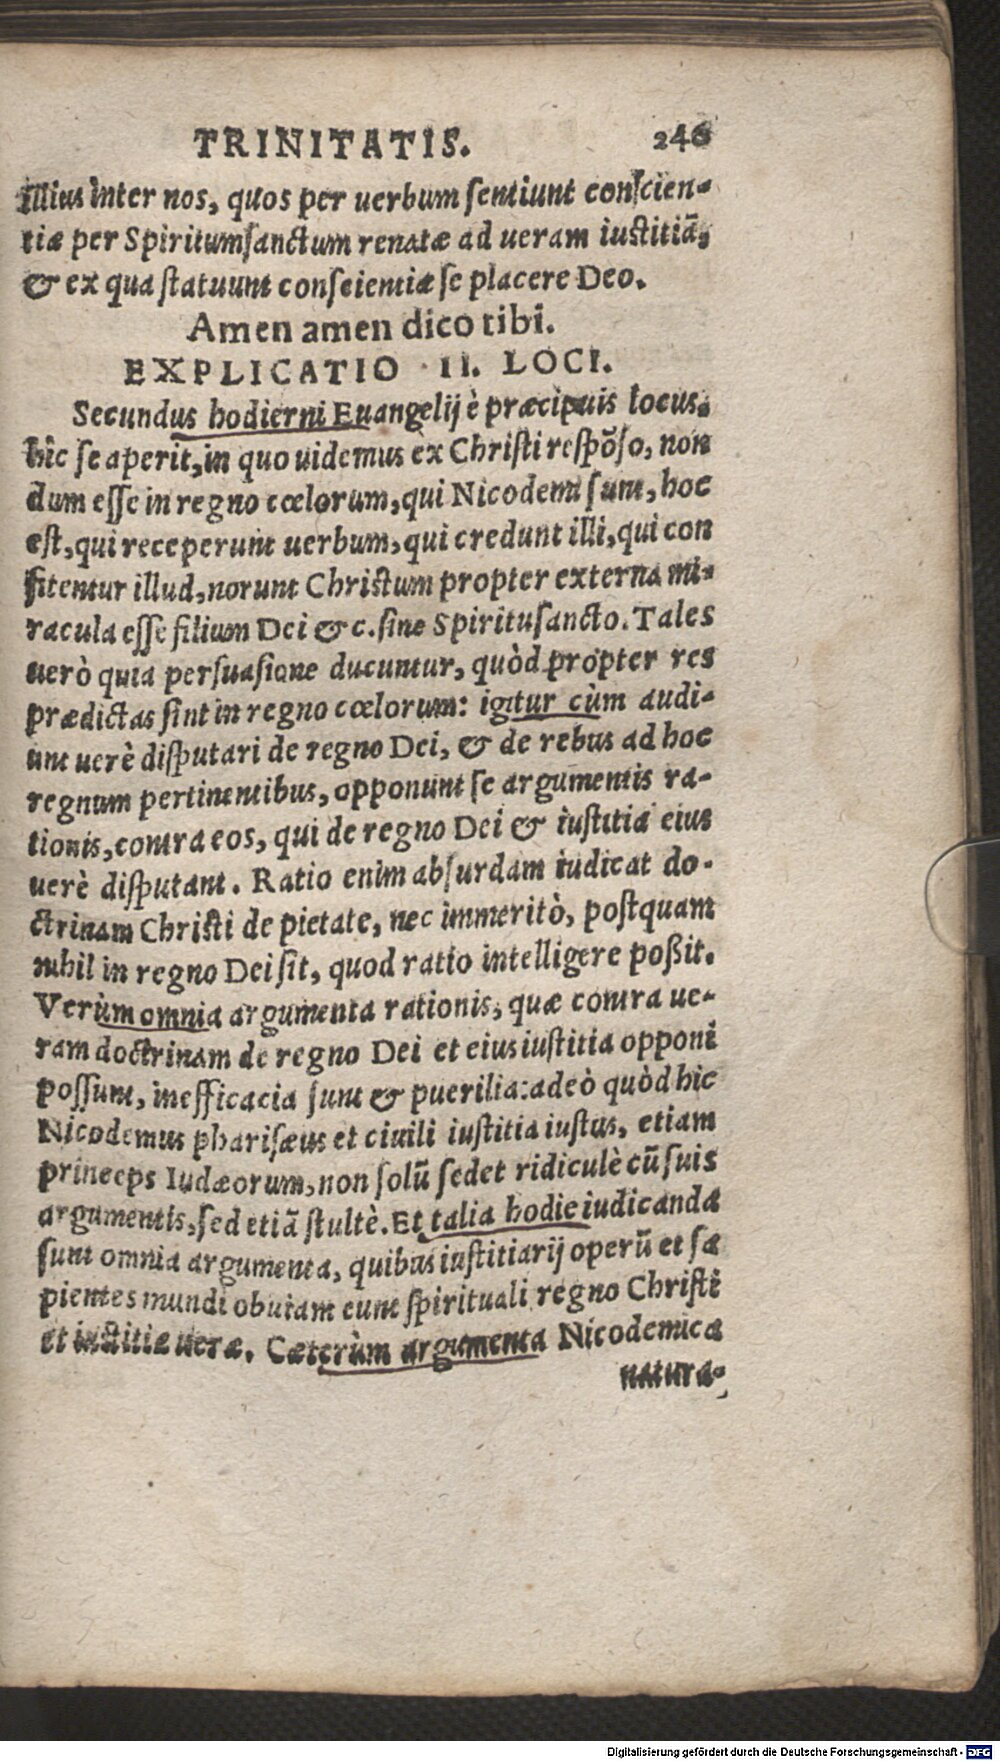 TRINITATIS. 246
illius inter nos, quos per uerbum sentiunt conscien-
tiæ per Spiritumsanctum renatæ ad ueram iustitiā,
& ex qua statuunt conscientiæ se placere Deo.
Amen amen dico tibi.
EXPLICATIO II. LOCI.
Secundus hodierni Euangelij è præcipuis locus,
hîc se aperit, in quo uidemus ex Christi respōso, non
dum esse in regno cœlorum, qui Nicodemi sunt, hoc
est, qui receperunt uerbum, qui credunt illi, qui con
fitentur illud, norunt Christum propter externa mi-
racula esse filium Dei & c. sine Spiritusancto. Tales
uerò quia persuasione ducuntur, quòd propter res
prædictas sint in regno cœlorum: igitur cùm audi-
unt uerè disputari de regno Dei, & de rebus ad hoc
regnum pertinentibus, opponunt se argumentis ra-
tionis, contra eos, qui de regno Dei & iustitia eius
uerè disputant. Ratio enim absurdam iudicat do-
ctrinam Christi de pietate, nec immeritò, postquam
nihil in regno Dei sit, quod ratio intelligere poßit.
Verùm omnia argumenta rationis, quæ contra ue-
ram doctrinam de regno Dei et eius iustitia opponi
possunt, inefficacia sunt & puerilia: adeò quòd hic
Nicodemus pharisæus et ciuili iustitia iustus, etiam
princeps Iudæorum, non solū sedet ridiculè cū suis
argumentis, sed etiā stultè. Et talia hodie iudicanda
sunt omnia argumenta, quibus iustitiarij operū et sa
pientes mundi obuiam eunt spirituali regno Christi
et iustitiæ ueræ. Cæterùm argumenta Nicodemica
natura-
Digitalisierung gefördert durch die Deutsche Forschungsgemeinschaft - DFG